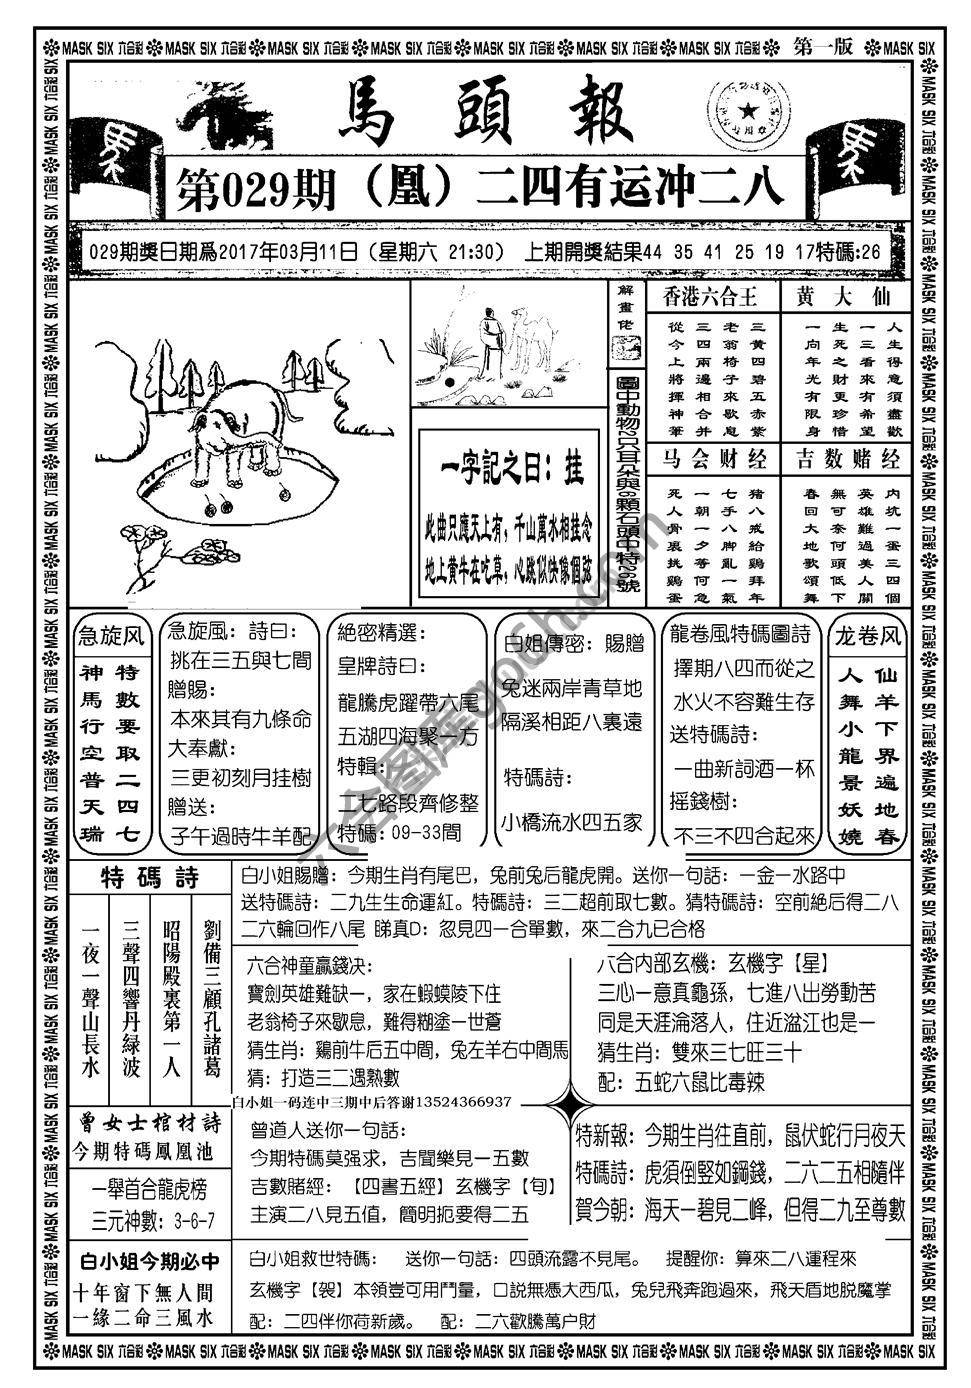 MASK SIX 六合彩 MASK SIX 六合彩 MASK SIX 六合彩 MASK SIX 六合彩 MASK SIX 六合彩 MASK SIX 六合彩 MASK SIX 六合彩 第一版 MASK SIX
馬頭報
第029期（凰）二四有运冲二八
029期獎日期爲2017年03月11日（星期六 21:30） 上期開獎結果44 35 41 25 19 17特碼:26
解畫佬
圖中動物2只耳朵與6顆石頭中特26號
一字記之曰：挂
此曲只應天上有，千山萬水相挂念
地上黄牛在吃草，心跳似快像個豁
香港六合王
三黄四碧五赤紫
老翁椅子來歇息
三四兩邊相合并
從今上將揮神筆
黄大仙
人生得意須盡歡
一三看來有希望
生死之財更珍惜
一向年光有限身
马会财经
猪八戒給鷄拜年
七手八脚亂一氣
一朝一夕等何急
死人骨裏挑鷄蛋
吉数赌经
内坑一蛋三四個
英雄難過美人關
無可奈何頭低下
春回大地歌頌舞
急旋风
特數要取二四七
神馬行空普天瑞
急旋風：詩曰：
挑在三五與七間
贈賜：
本來其有九條命
大奉獻：
三更初刻月挂樹
贈送：
子午過時牛羊配
絶密精選：
皇牌詩曰：
龍騰虎躍帶六尾
五湖四海聚一方
特輯：
二七路段齊修整
特碼：09-33間
白姐傳密：賜贈
兔迷兩岸青草地
隔溪相距八裏遠
特碼詩：
小橋流水四五家
龍卷風特碼圖詩
擇期八四而從之
水火不容難生存
送特碼詩：
一曲新詞酒一杯
摇錢樹：
不三不四合起來
龙卷风
仙羊下界遍地春
人舞小龍景妖嬈
特碼詩
劉備三顧孔諸葛
昭陽殿裏第一人
三聲四響丹緑波
一夜一聲山長水
白小姐賜贈：今期生肖有尾巴，兔前兔后龍虎開。送你一句話：一金一水路中
送特碼詩：二九生生命運紅。特碼詩：三二超前取七數。猜特碼詩：空前絶后得二八
二六輪回作八尾 睇真D：忽見四一合單數，來二合九已合格
六合神童贏錢决：
寶劍英雄難缺一，家在蝦蟆陵下住
老翁椅子來歇息，難得糊塗一世蒼
猜生肖：鷄前牛后五中間，兔左羊右中間馬
猜：打造三二遇熟數
八合内部玄機：玄機字【星】
三心一意真龜孫，七進八出勞動苦
同是天涯淪落人，住近湓江也是一
猜生肖：雙來三七旺三十
配：五蛇六鼠比毒辣
白小姐一码连中三期中后答谢13524366937
曾女士棺材詩
今期特碼鳳凰池
一舉首合龍虎榜
三元神數：3-6-7
曾道人送你一句話：
今期特碼莫强求，吉聞樂見一五數
吉數賭經：【四書五經】玄機字【旬】
主演二八見五值，簡明扼要得二五
特新報：今期生肖往直前，鼠伏蛇行月夜天
特碼詩：虎須倒竪如鋼錢，二六二五相隨伴
賀今朝：海天一碧見二峰，但得二九至尊數
白小姐今期必中
十年窗下無人間
一緣二命三風水
白小姐救世特碼： 送你一句話：四頭流露不見尾。 提醒你：算來二八運程來
玄機字【袈】本領豈可用鬥量，口説無憑大西瓜，兔兒飛奔跑過來，飛天盾地脱魔掌
配：二四伴你荷新歲。 配：二六歡騰萬户財
MASK SIX 六合彩 MASK SIX 六合彩 MASK SIX 六合彩 MASK SIX 六合彩 MASK SIX 六合彩 MASK SIX 六合彩 MASK SIX 六合彩 MASK SIX 六合彩 MASK SIX